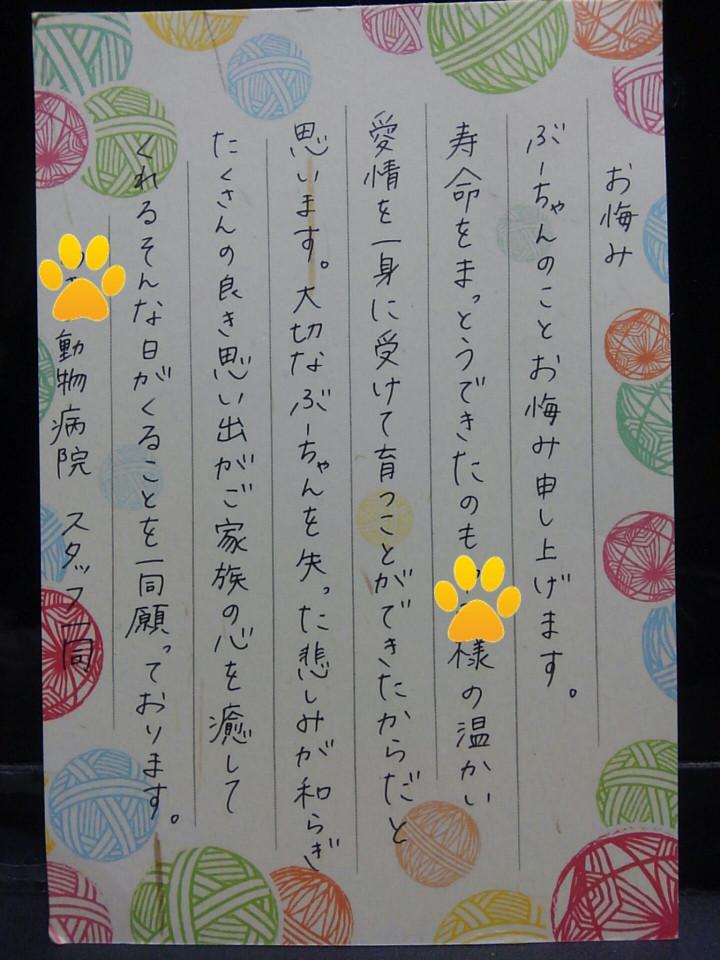 お悔み
ぶーちゃんのことお悔み申し上げます。
寿命をまっとうできたのも様の温かい
愛情を一身に受けて育つことができたからだと
思います。大切なぶーちゃんを失った悲しみが和らぎ
たくさんの良き思い出がご家族の心を癒して
くれるそんな日がくることを一同願っております。
動物病院 スタッフ一同